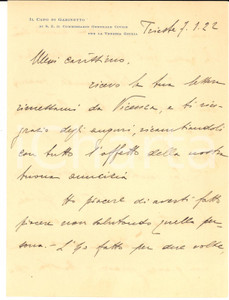 Il Capo di Gabinetto
di S. E. il Commissario Generale Civile
per la Venezia Giulia
Trieste 7.1.22
Mio carissimo,
ricevo la tua lettera
rimettami da Vicenza, e ti rin-
grazio degli auguri, ricambiandoli
con tutto l'affetto della nostra
buona amicizia
Ho piacere di averti fatto
piacere non salutando quella per-
sona - L'ho fatto per due volte